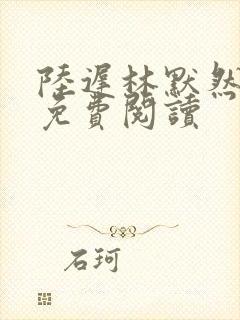 陸遲林默然
免費閱讀
石珂